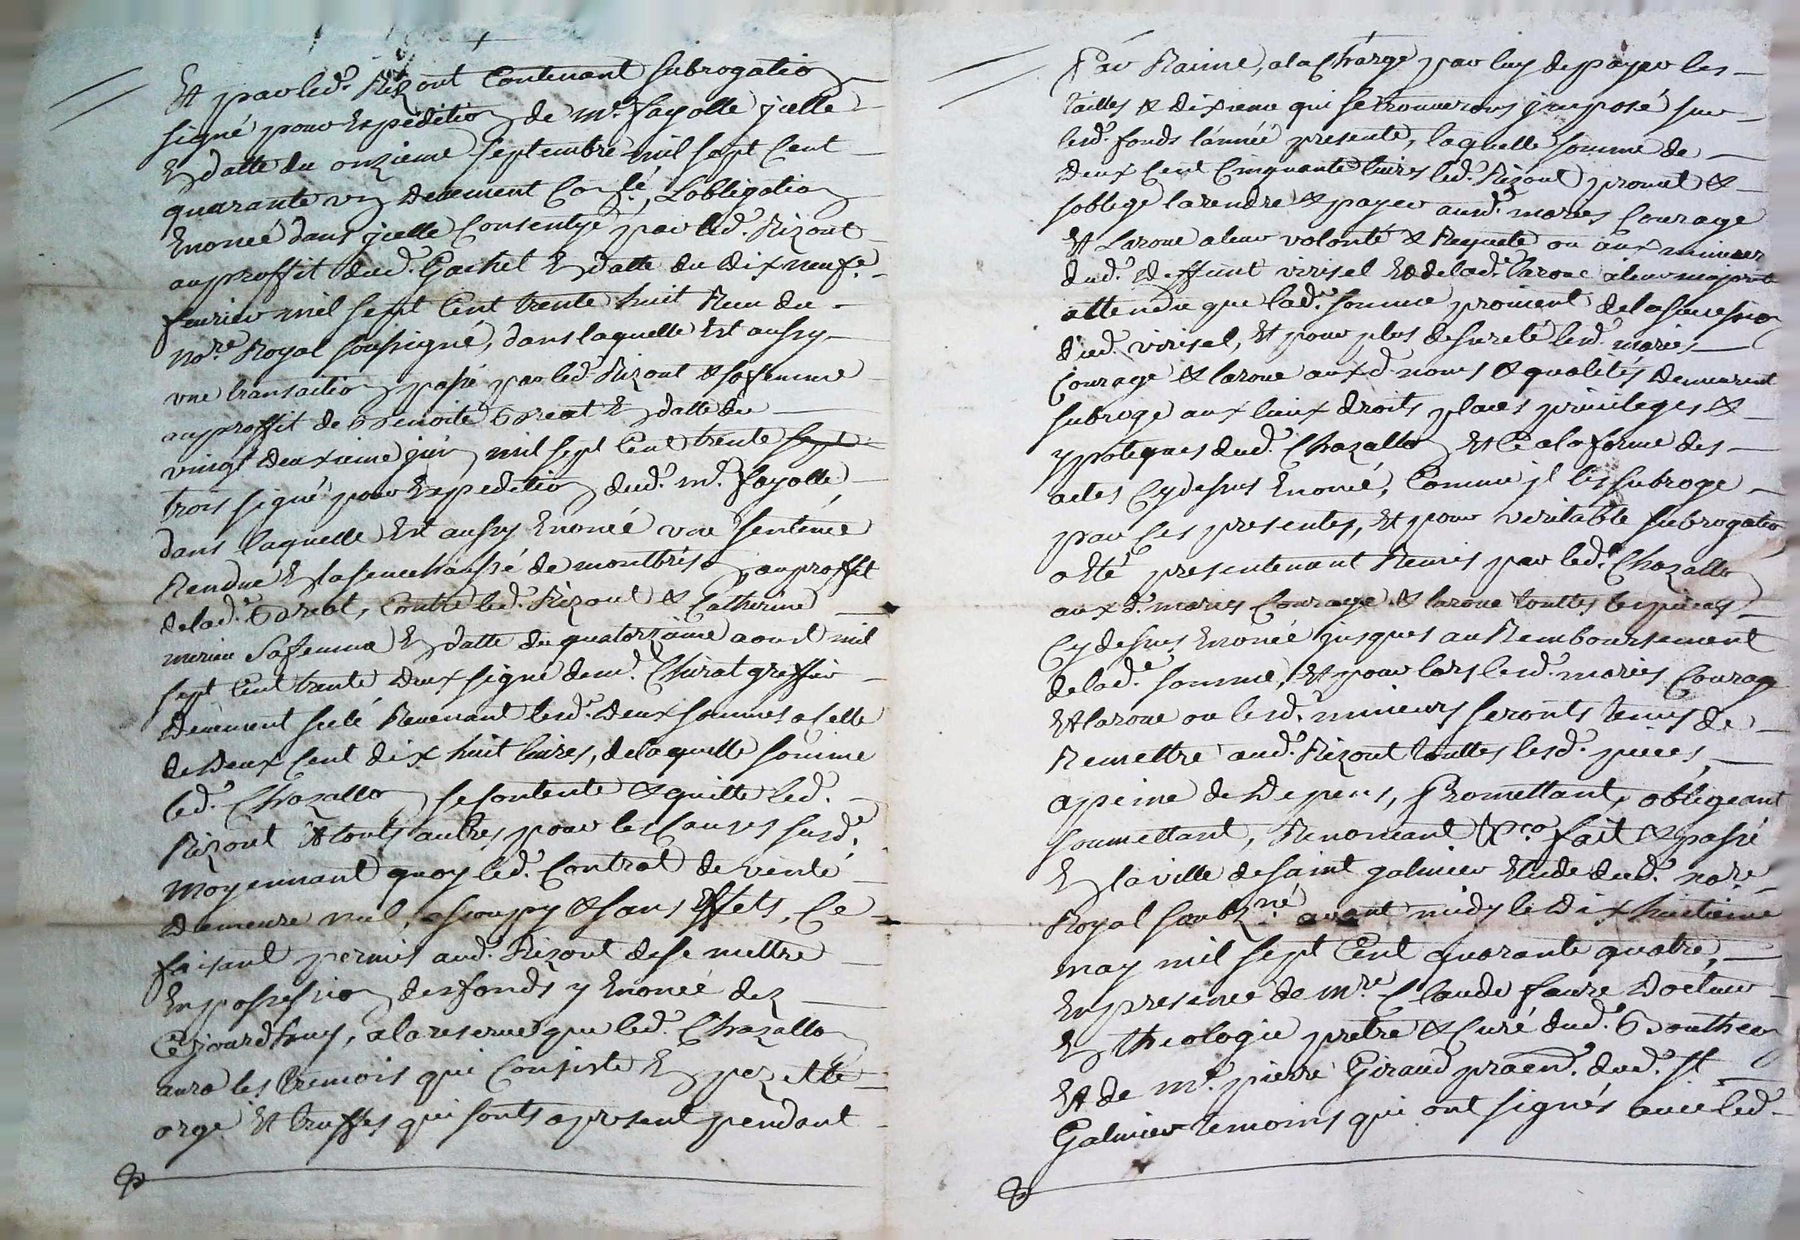 Et par led. Rizont Contenant subrogation
signé pour Expedition de mr. fayolle jcelle
En datte du onzieme septembre mil sept Cent
quarante un deuement , Lobligation
Enoncé dans jcelle Consentye par led. Rizont
au proffit dud. Gachet En datte du dix neufe.
feurier mil sept Cent trente huit Reçu du
nore. Royal soussigné, dans laquelle Est aussy
vne transaction passé par led. Rizont & sa femme
au proffit de Benoite En datte du
vingt deuxieme juin mil sept Cent trente sept
trois signé pour Expedition dud. mr. fayolle,
dans laquelle Est aussy Enoncé vne sentence
Rendue En la senechaussé de montbrison au proffit
de lad. Contre led. Rizont & Catherine
sa femme En datte du quatorzieme aoust mil
sept Cent trente deux signé de mr. Chirat greffier
deuement selé Reuenant lesd. deux sommes a celle
de deux Cent dix huit liures, de laquelle somme
led. Chazallon se contente & quitte led.
Rizont & touts autres pour les Causes susd.
moyennant quoy led. Contrat de vente
demeure nul, assoupy & sans Effets, Ce
faisant permis aud. Rizont de se mettre
En possession des fonds y Enoncé dez
Cejourdhuy, a la reserue que led. Chazallon
aura les tremois qui Consiste En pezette
orge Et truffes qui sonts a present pendant
Par Racine, a la Charge par luy de payer les
tailles & dixieme qui se trouuerons jmposé sur
lesd. fonds l'année presente, laquelle somme de
deux Cent Cinquante liures led. Rizont promet &
soblige la rendre & payer aud. maries Courage
Et Laroue a leur volonté & Requete ou aux mineurs
dud. deffunt virisel Et de lad. laroue a leur majorité
attendu que lad. somme prouient de la sucession
dud. virisel, Et pour plus de sureté lesd. mariés
Courage & laroue auxd. noms & qualités demeurent
subroge aux lieux droits places priuileges &
ypoteques dud. Chazallon Et Ce a la forme des
actes Cy dessus Enoncé, Comme jl les subroge
par Ces presentes, Et pour veritable subrogation
a Eté presentement Remis par led. Chazallon
aux d. maries Courage & laroue touttes les pieces
Cy dessus Enoncé jusques au Remboursement
de lad. somme, Et pour lors lesd. mariés Courage
Et laroue ou lesd. mineurs seronts tenus de
Remettre aud. Rizont touttes lesd. pieces,
a peine de depens, Promettant, obligeant
soumettant, Renoncant &ca. fait & passé
En la ville de saint galmier Etude dud. nore.
Royal soubzné. auant midy le dix huitieme
may mil sept Cent quarante quatre,
En presence de mre. Claude faure docteur
En theologie pretre & Curé dud. Bouthéon
Et de mr. pierre Giraud praen. dud. st
Galmier temoins qui ont signés auec led.